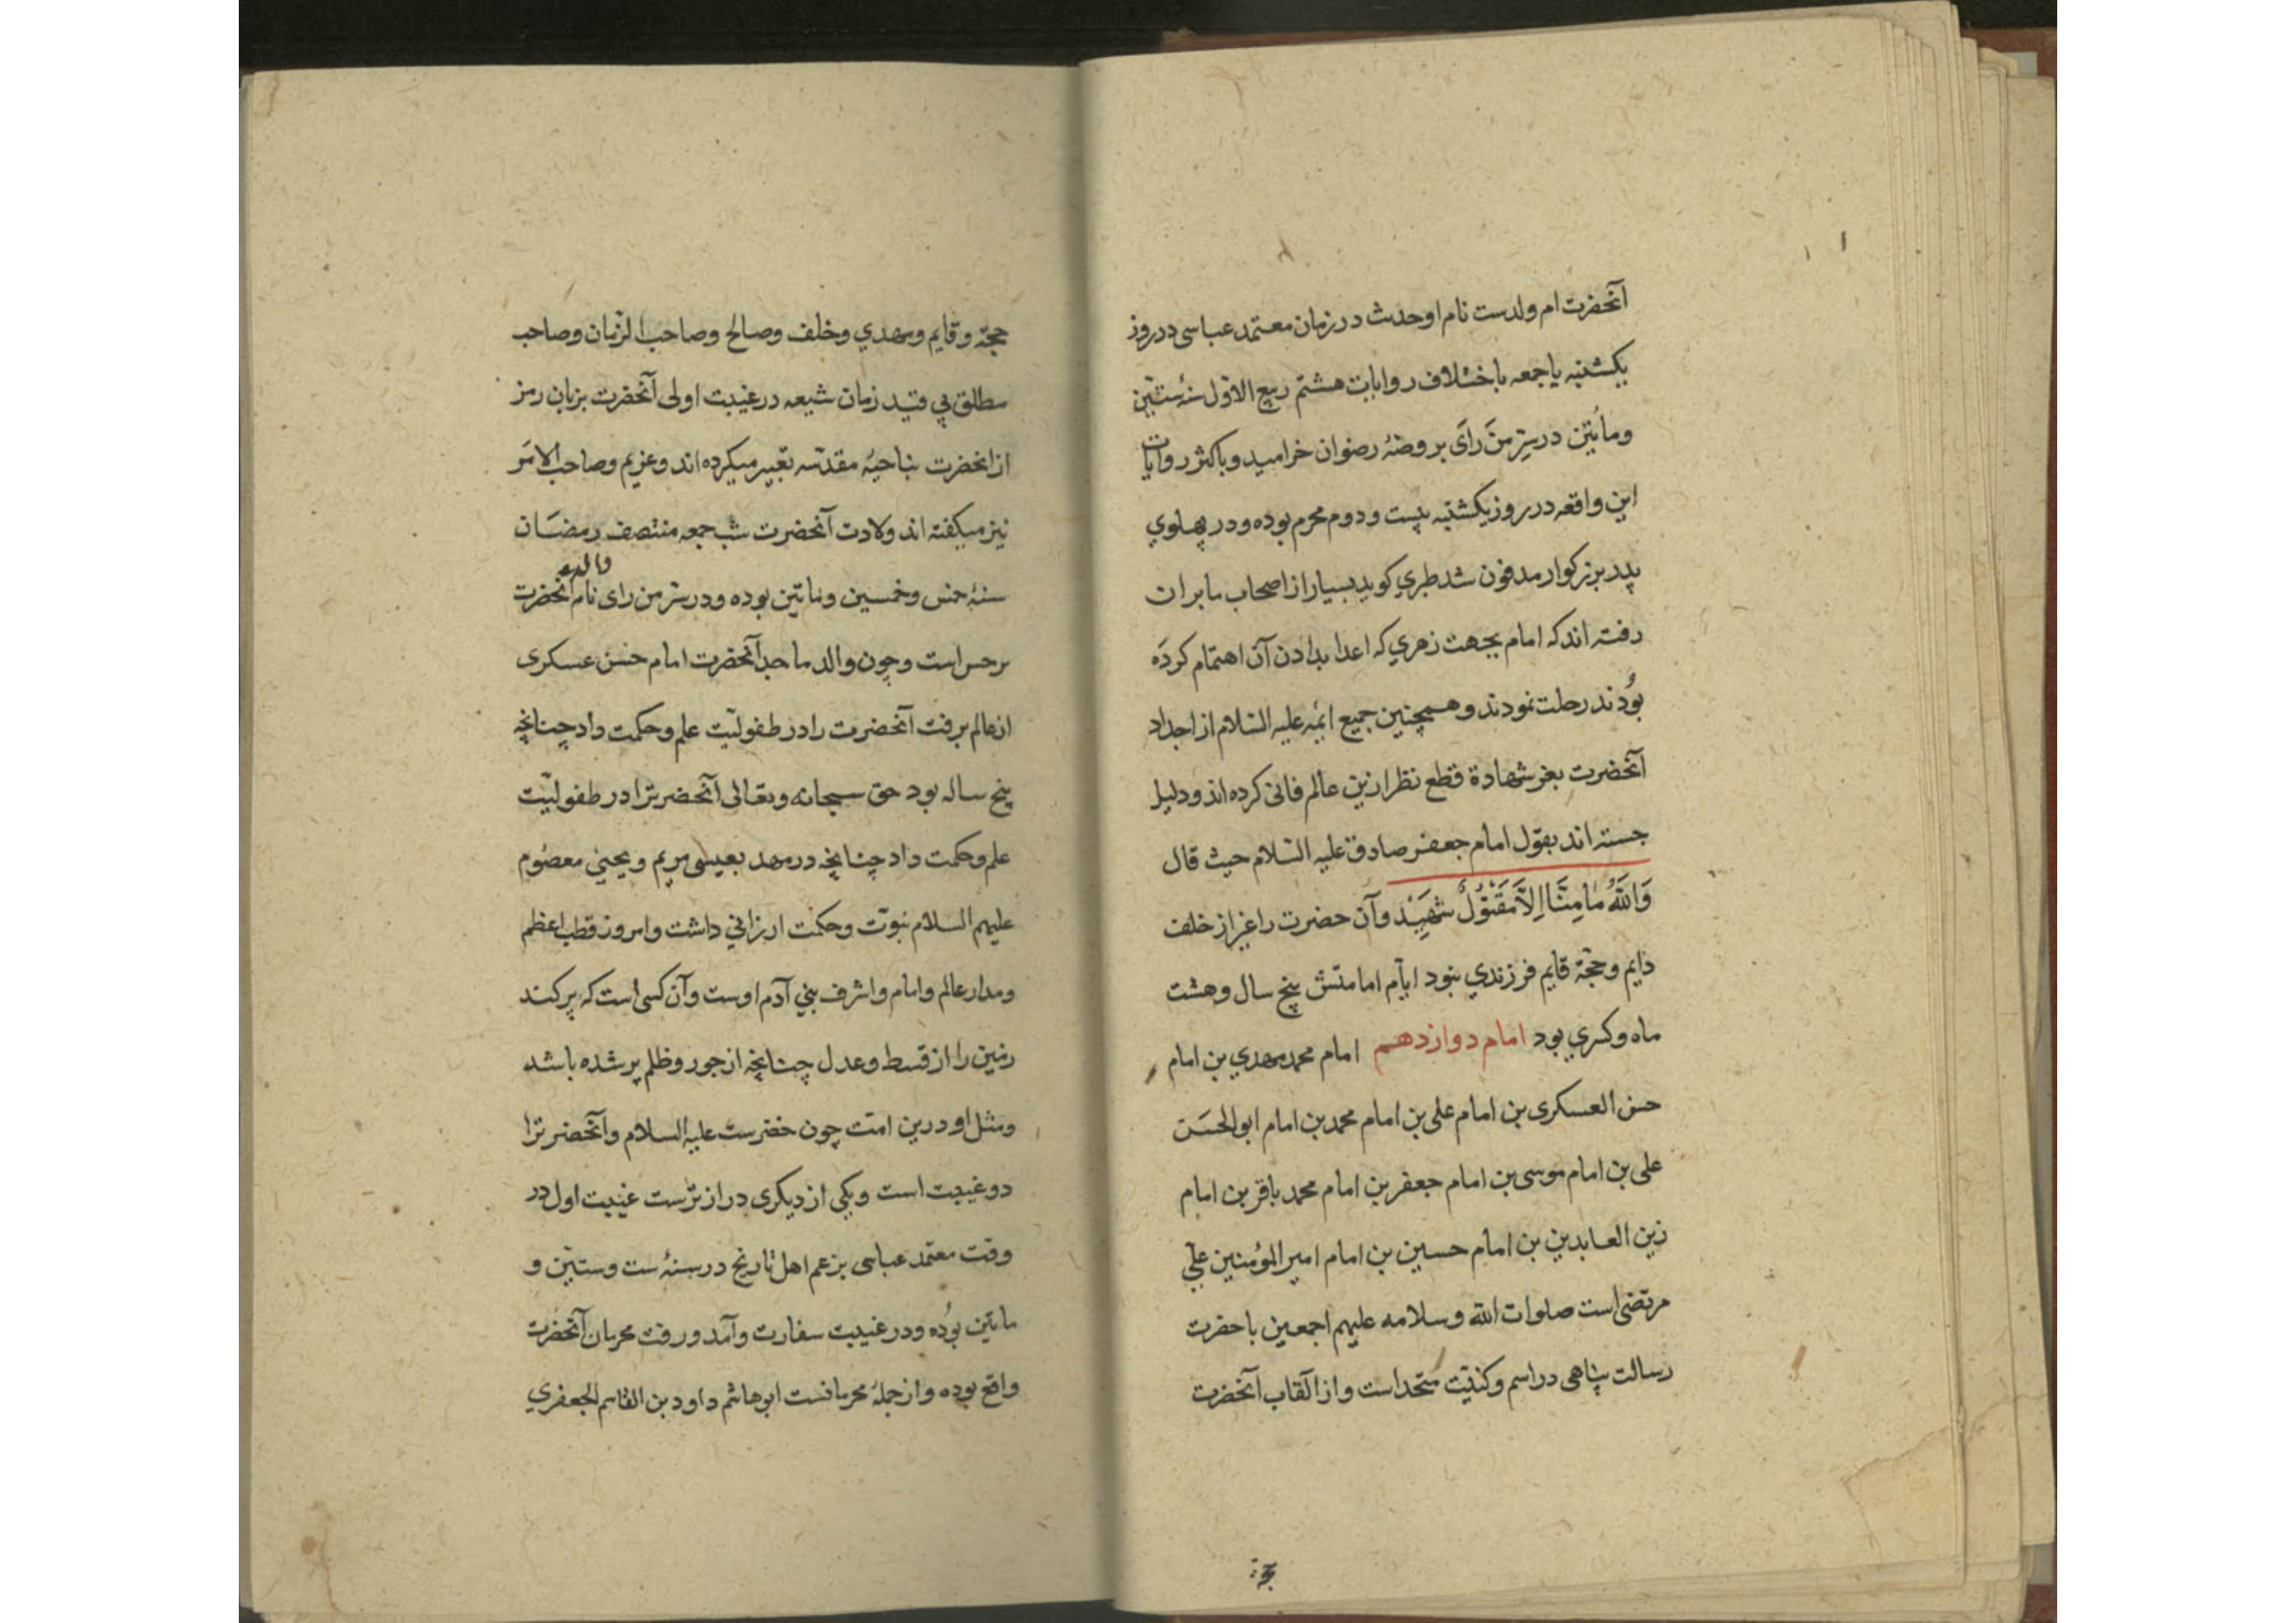 آنحضرت ام ولدست نام او حدیث در زمان معتمد عباسی در روز
یکشنبه یا جمعه باختلاف روایات هشتم ربیع الاوّل سنهٔ ستّین
و مأتین در سرّ من رَای بروضهٔ رضوان خرامید و باکثر روایات
این واقعه در روز یکشنبه بیست و دوم محرم بوده و در پهلوي
پدر بزرکوار مدفون شد طبري کوید بسیار از اصحاب ما بران
رفته اند که امام بجهت زهري که اعدا بدادن آن اهتمام کرده
بُودند رحلت نمودند و همچنین جمیع ائمه علیه السّلام از اجداد
آنحضرت بغیر شهادة قطع نظر ازین عالم فانی کرده اند و دلیل
جسته اند بقول امام جعفر صادق علیه السّلام حیث قال
وَاللَّهُ مٰا مِنَّا اِلَّا مَقْتُوْلٌ شَهِيْد و آن حضرت را غیر از خلف
دایم و حجّة قایم فرزندي نبود ایام امامتش پنج سال و هشت
ماه و کسري بود امام دوازدهم امام محمد مهدي بن امام
حسن العسکری بن امام علی بن امام محمد بن امام ابو الحسَن
علی بن امام موسی بن امام جعفر بن امام محمد باقر بن امام
زین العابدین بن امام حسین بن امام امیر المؤمنین علي
مرتضی است صلوات الله و سلامه علیهم اجمعین باحضرت
رسالت پناهی در اسم و کنیّت متّحد است و از القاب آنحضرت
حجة
حجّة و قایم و مهدي و خلف و صالح و صاحب الزّمان و صاحب
مطلق بي قید زمان شیعه در غیبت اولی آنحضرت بزبان رمز
از انحضرت بناحیهٔ مقدّسه تعبیر میکرده اند و غریم و صاحب الامَر
نیز میکفته اند ولادت آنحضرت شب جمعه منتصف رمضَان
والده
سنهٔ خمس و خمسین و ماتین بوده و در سرّ من رای نام انحضرت
نرجس است و چون والد ماجد آنحضرت امام حسن عسکری
از عالم برفت آنحضرت را در طفولیّت علم و حکمت داد چنانچه
پنج ساله بود حق سبحانه و تعالی آنحضرترا در طفولیّت
علم و حکمت داد چنانچه در مهد بعیسی مریم و یحیی معصُوم
علیهم السلام نبوّت و حکمت ارزاني داشت و امروز قطب اعظم
و مدار عالم و امام و اشرف بني آدم اوست و آن کسی است که پر کند
زمین را از قسط و عدل چنانچه از جور و ظلم پر شده باشد
و مثل او درین امّت چون خضرست علیه السلام و آنحضرترا
دو غیبت است و یکي از دیکری دراز ترست غیبت اول در
وقت معتمد عباسی بزعم اهل تاریخ در سنهٔ ست و ستّین و
ماتین بُوده و در غیبت سفارت و آمد و رفت محرمان آنحضرت
واقع بوده و از جملهٔ محرمانست ابو هاشم داود بن القاسم الجعفري